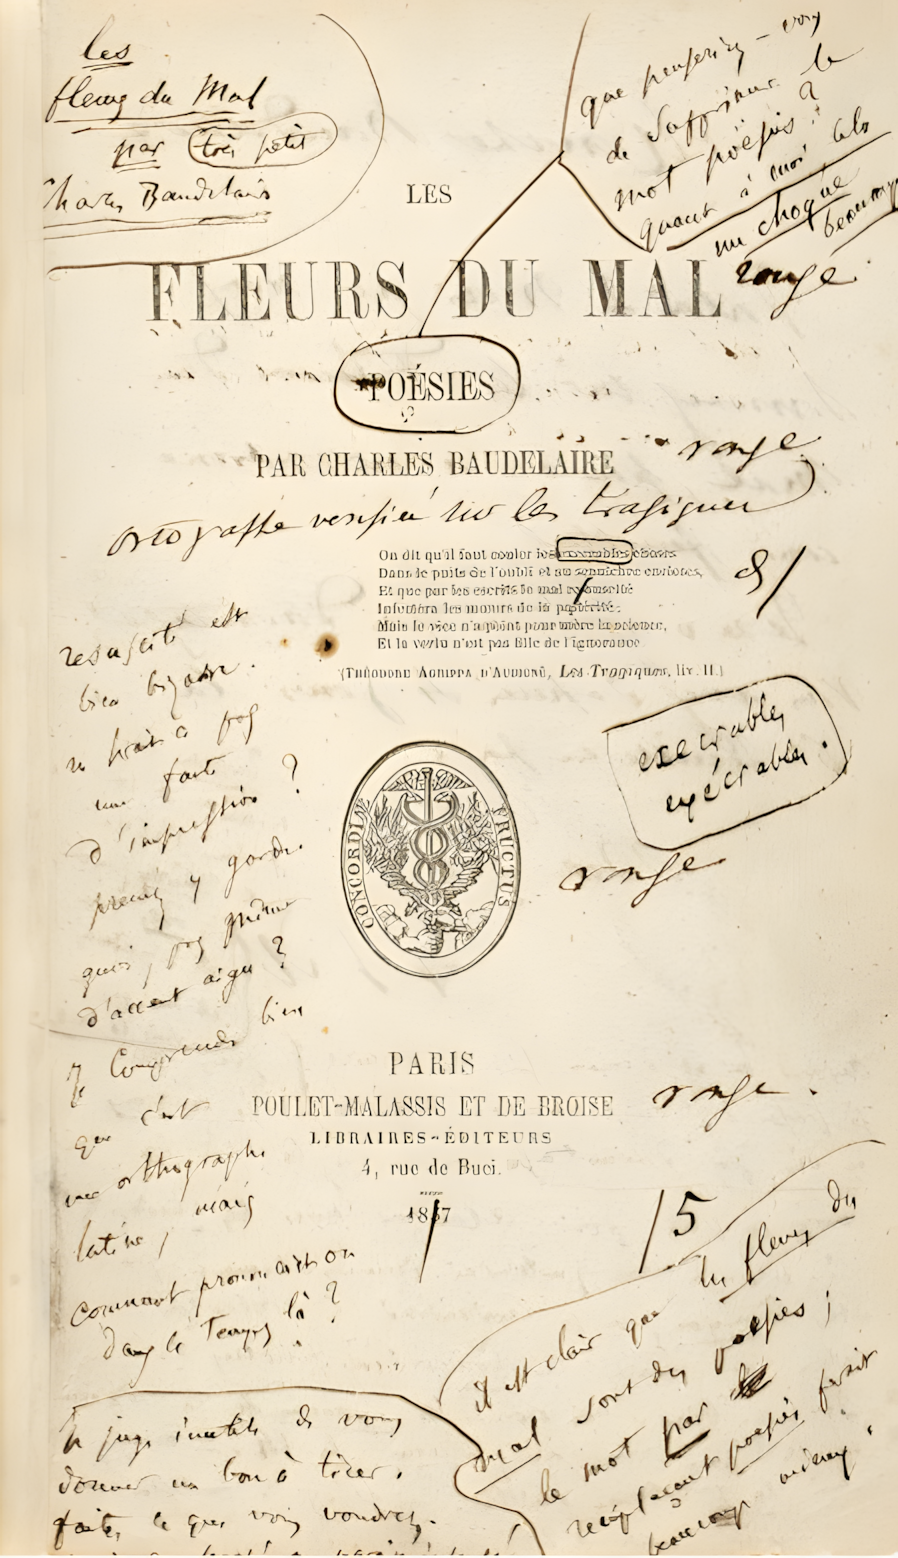 les
fleurs du Mal
par très petit
Charles Baudelaire
que penseriez-vous
de supprimer le
mot poësies ?
quant à moi, cela
me choque
beaucoup
rouge.
LES
FLEURS DU MAL
POÉSIES
PAR CHARLES BAUDELAIRE
rouge.
sur les tragiques
On dit qu'il faut couler les execrables choses
Dans le puits de l'oubli et au sepulchre encloses,
Et que par les escrits le mal resuscité
Infectera les mœurs de la postérité;
Mais le vice n'a point pour mère la science,
Et la vertu n'est pas fille de l'ignorance.
(THÉODORE AGRIPPA D'AUBIGNÉ, Les Tragiques, liv. II.)
resuscité est
bien bizarre.
ne serait-ce pas
une faute
d'impression ?
prenez y garde.
quoi, pas même
d'accent aigu ?
je comprends bien
que c'est
une orthographe
latine, mais
comment prononçait-on
dans ce temps là ?
execrables
exécrables.
CONCORDIÆ FRUCTUS
rouge
PARIS
POULET-MALASSIS ET DE BROISE
LIBRAIRES-ÉDITEURS
4, rue de Buci.
rouge.
1857
/5
il est clair que les fleurs du
mal sont des poësies ;
le mot par
remplaçant poësies ferait
beaucoup mieux.
Je juge inutile de vous
donner un bon à tirer.
faites ce que vous voudrez.